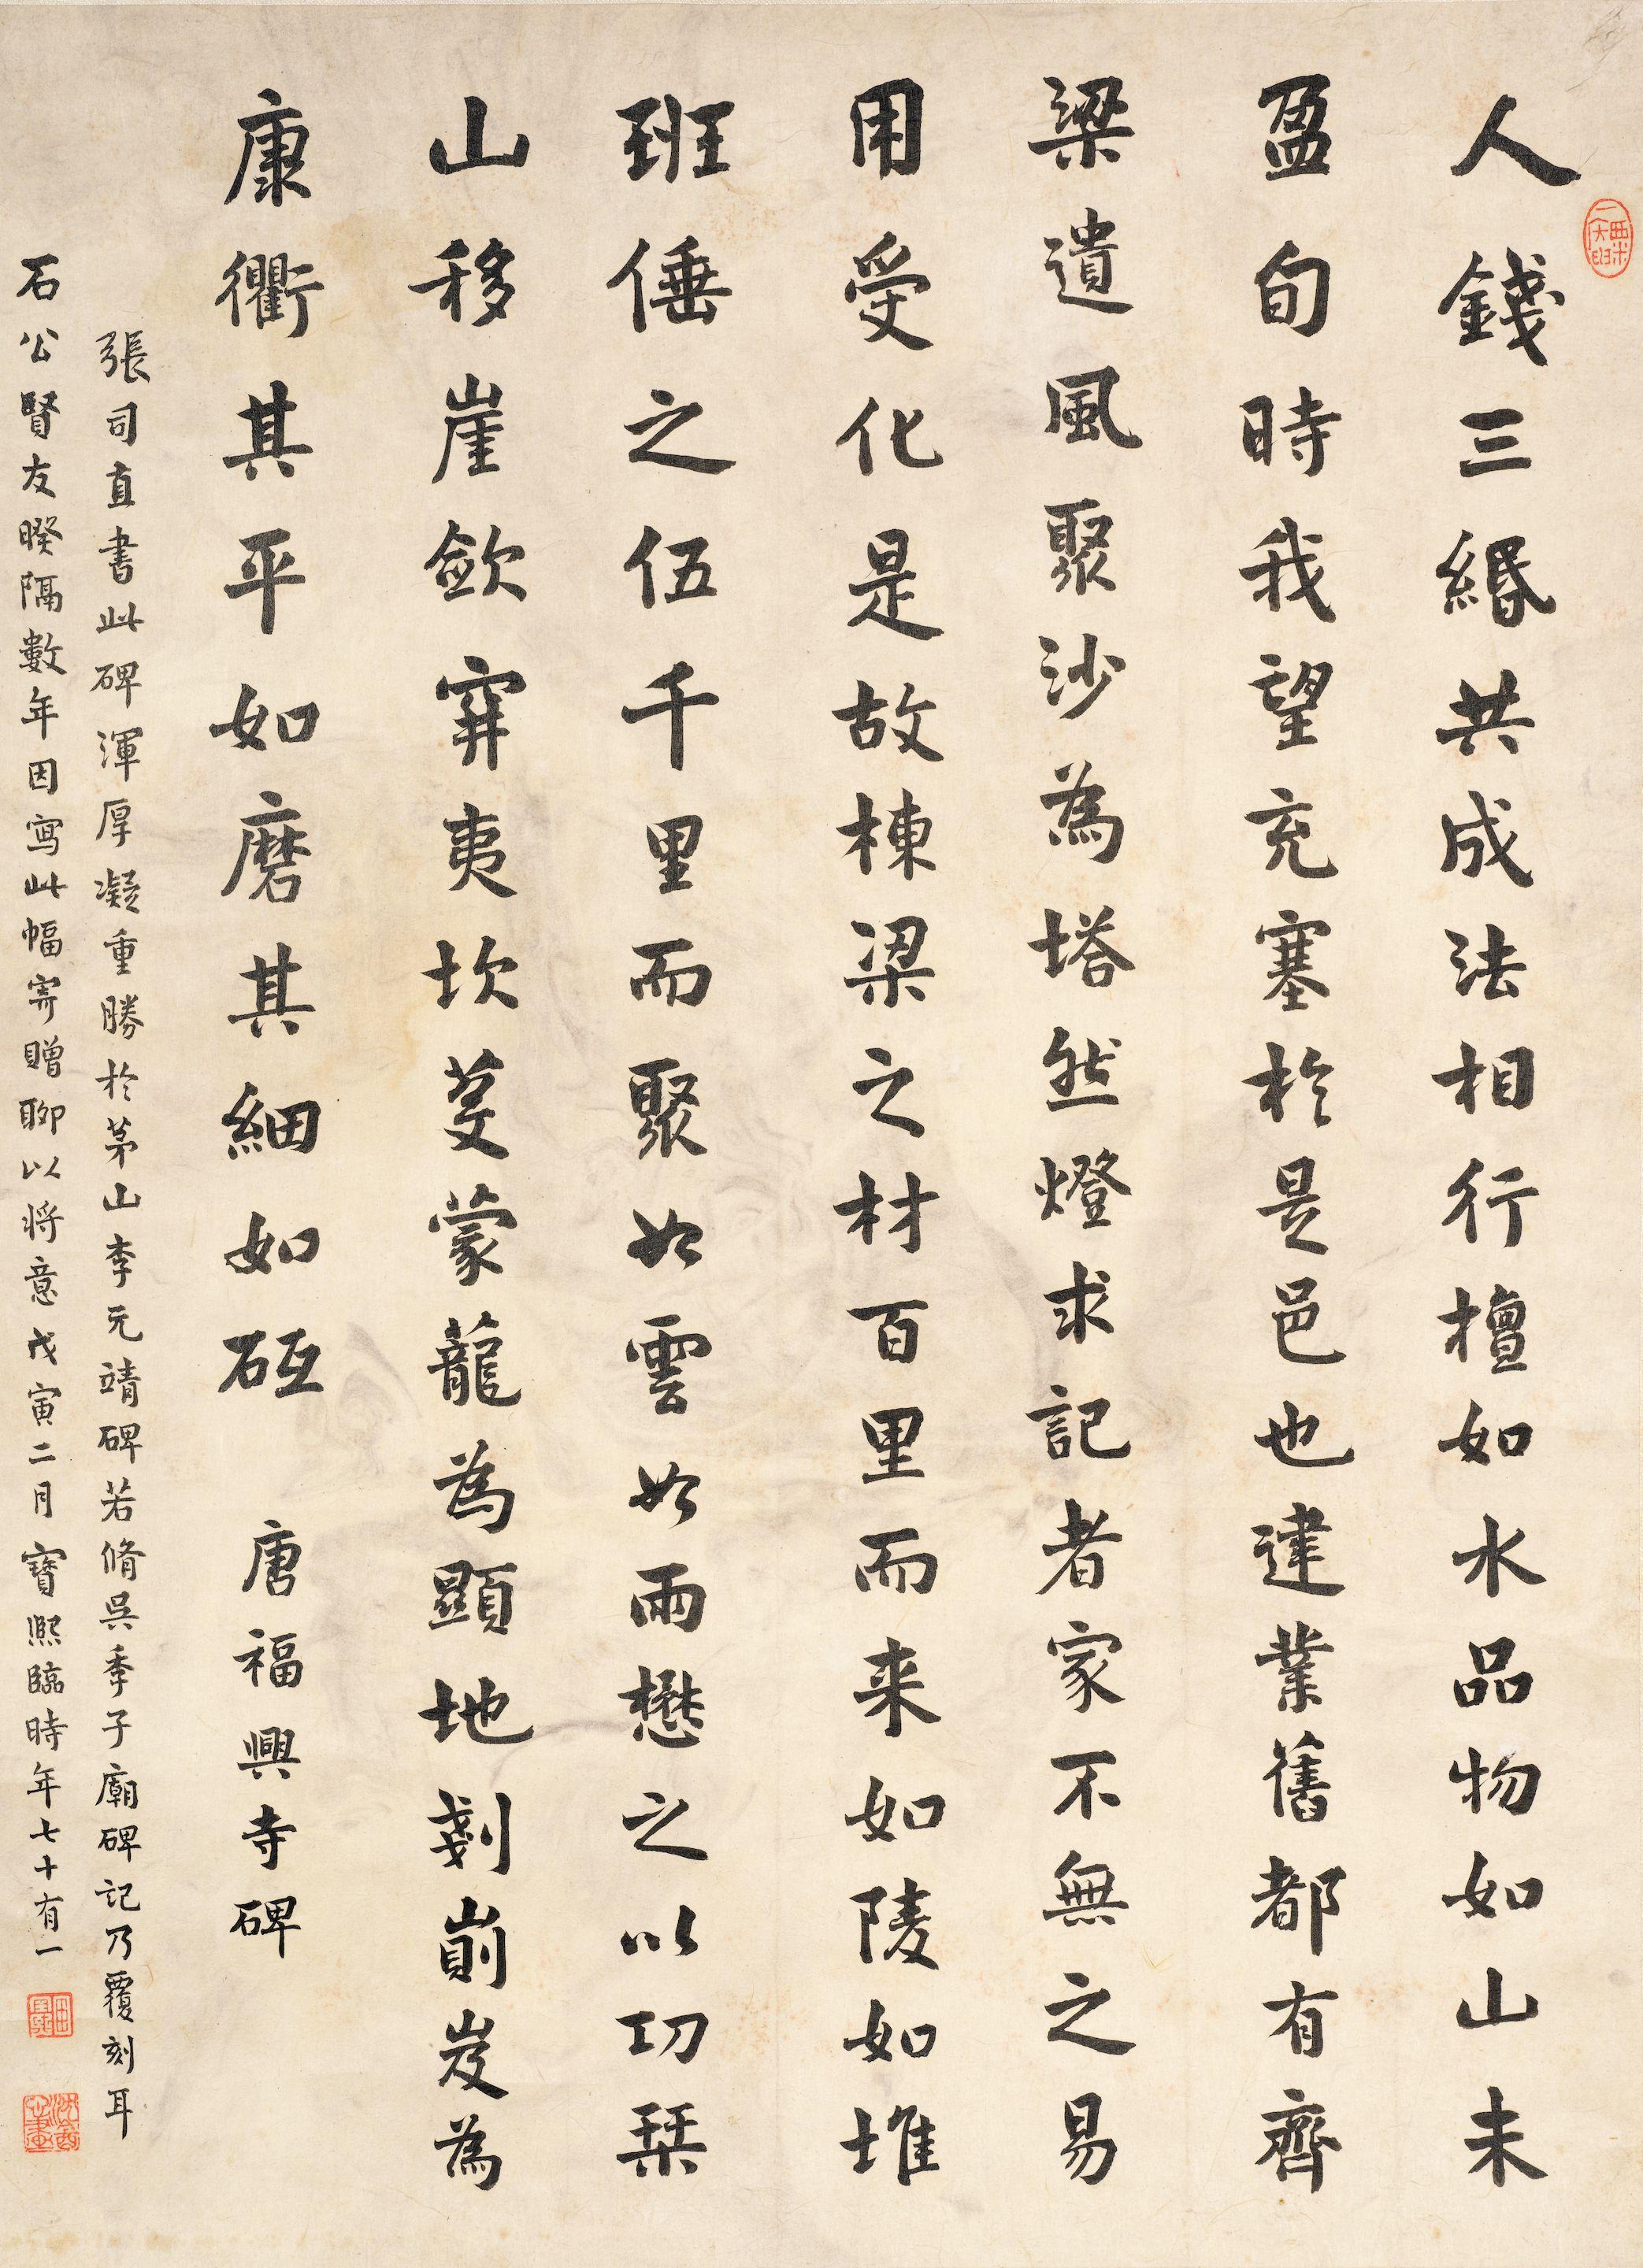 人錢三緡共成法相行檀如水品物如山未
盈旬時我望充塞於是邑也建業舊都有齊
梁遺風聚沙為塔然燈求記者家不無之易
用受化是故棟梁之材百里而来如陵如堆
班倕之伍千里而聚如雲如雨懋之以功栞
山移崖斂穽夷坎芟蒙蘢為顯地剗崱岌為
康衢其平如磨其細如砥 唐福興寺碑
張司直書此碑渾厚凝重勝於茅山李元靖碑若脩吳季子廟碑記乃覆刻耳
石公賢友暌隔數年因寫此幅寄贈聊以將意戊寅二月寶熙臨時年七十有一